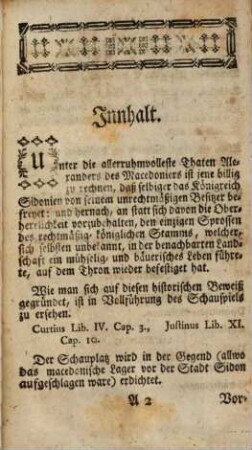 Innhalt.
Unter die allerruhmvolleste Thaten Ale-
xanders des Macedoniers ist jene billig
zu rechnen, daß selbiger das Königreich
Sidonien von seinem unrechtmäßigen Besitzer be-
freyet: und hernach, an statt sich davon die Ober-
herrlichkeit vorzubehalten, den einzigen Sprossen
des rechtmäßig-königlichen Stamms, welcher-
sich selbsten unbekannt, in der benachbarten Land-
schaft ein mühselig- und bäuerisches Leben führe-
te, auf dem Thron wieder befestiget hat.
Wie man sich auf diesen historischen Beweiß
gegründet, ist in Vollführung des Schauspiels
zu ersehen.
Curtius Lib. IV. Cap. 3., Justinus Lib. XI.
Cap. 10.
Der Schauplatz wird in der Gegend (allwo
das macedonische Lager vor der Stadt Sidon
aufgeschlagen ware) erdichtet.
A 2 Vor-